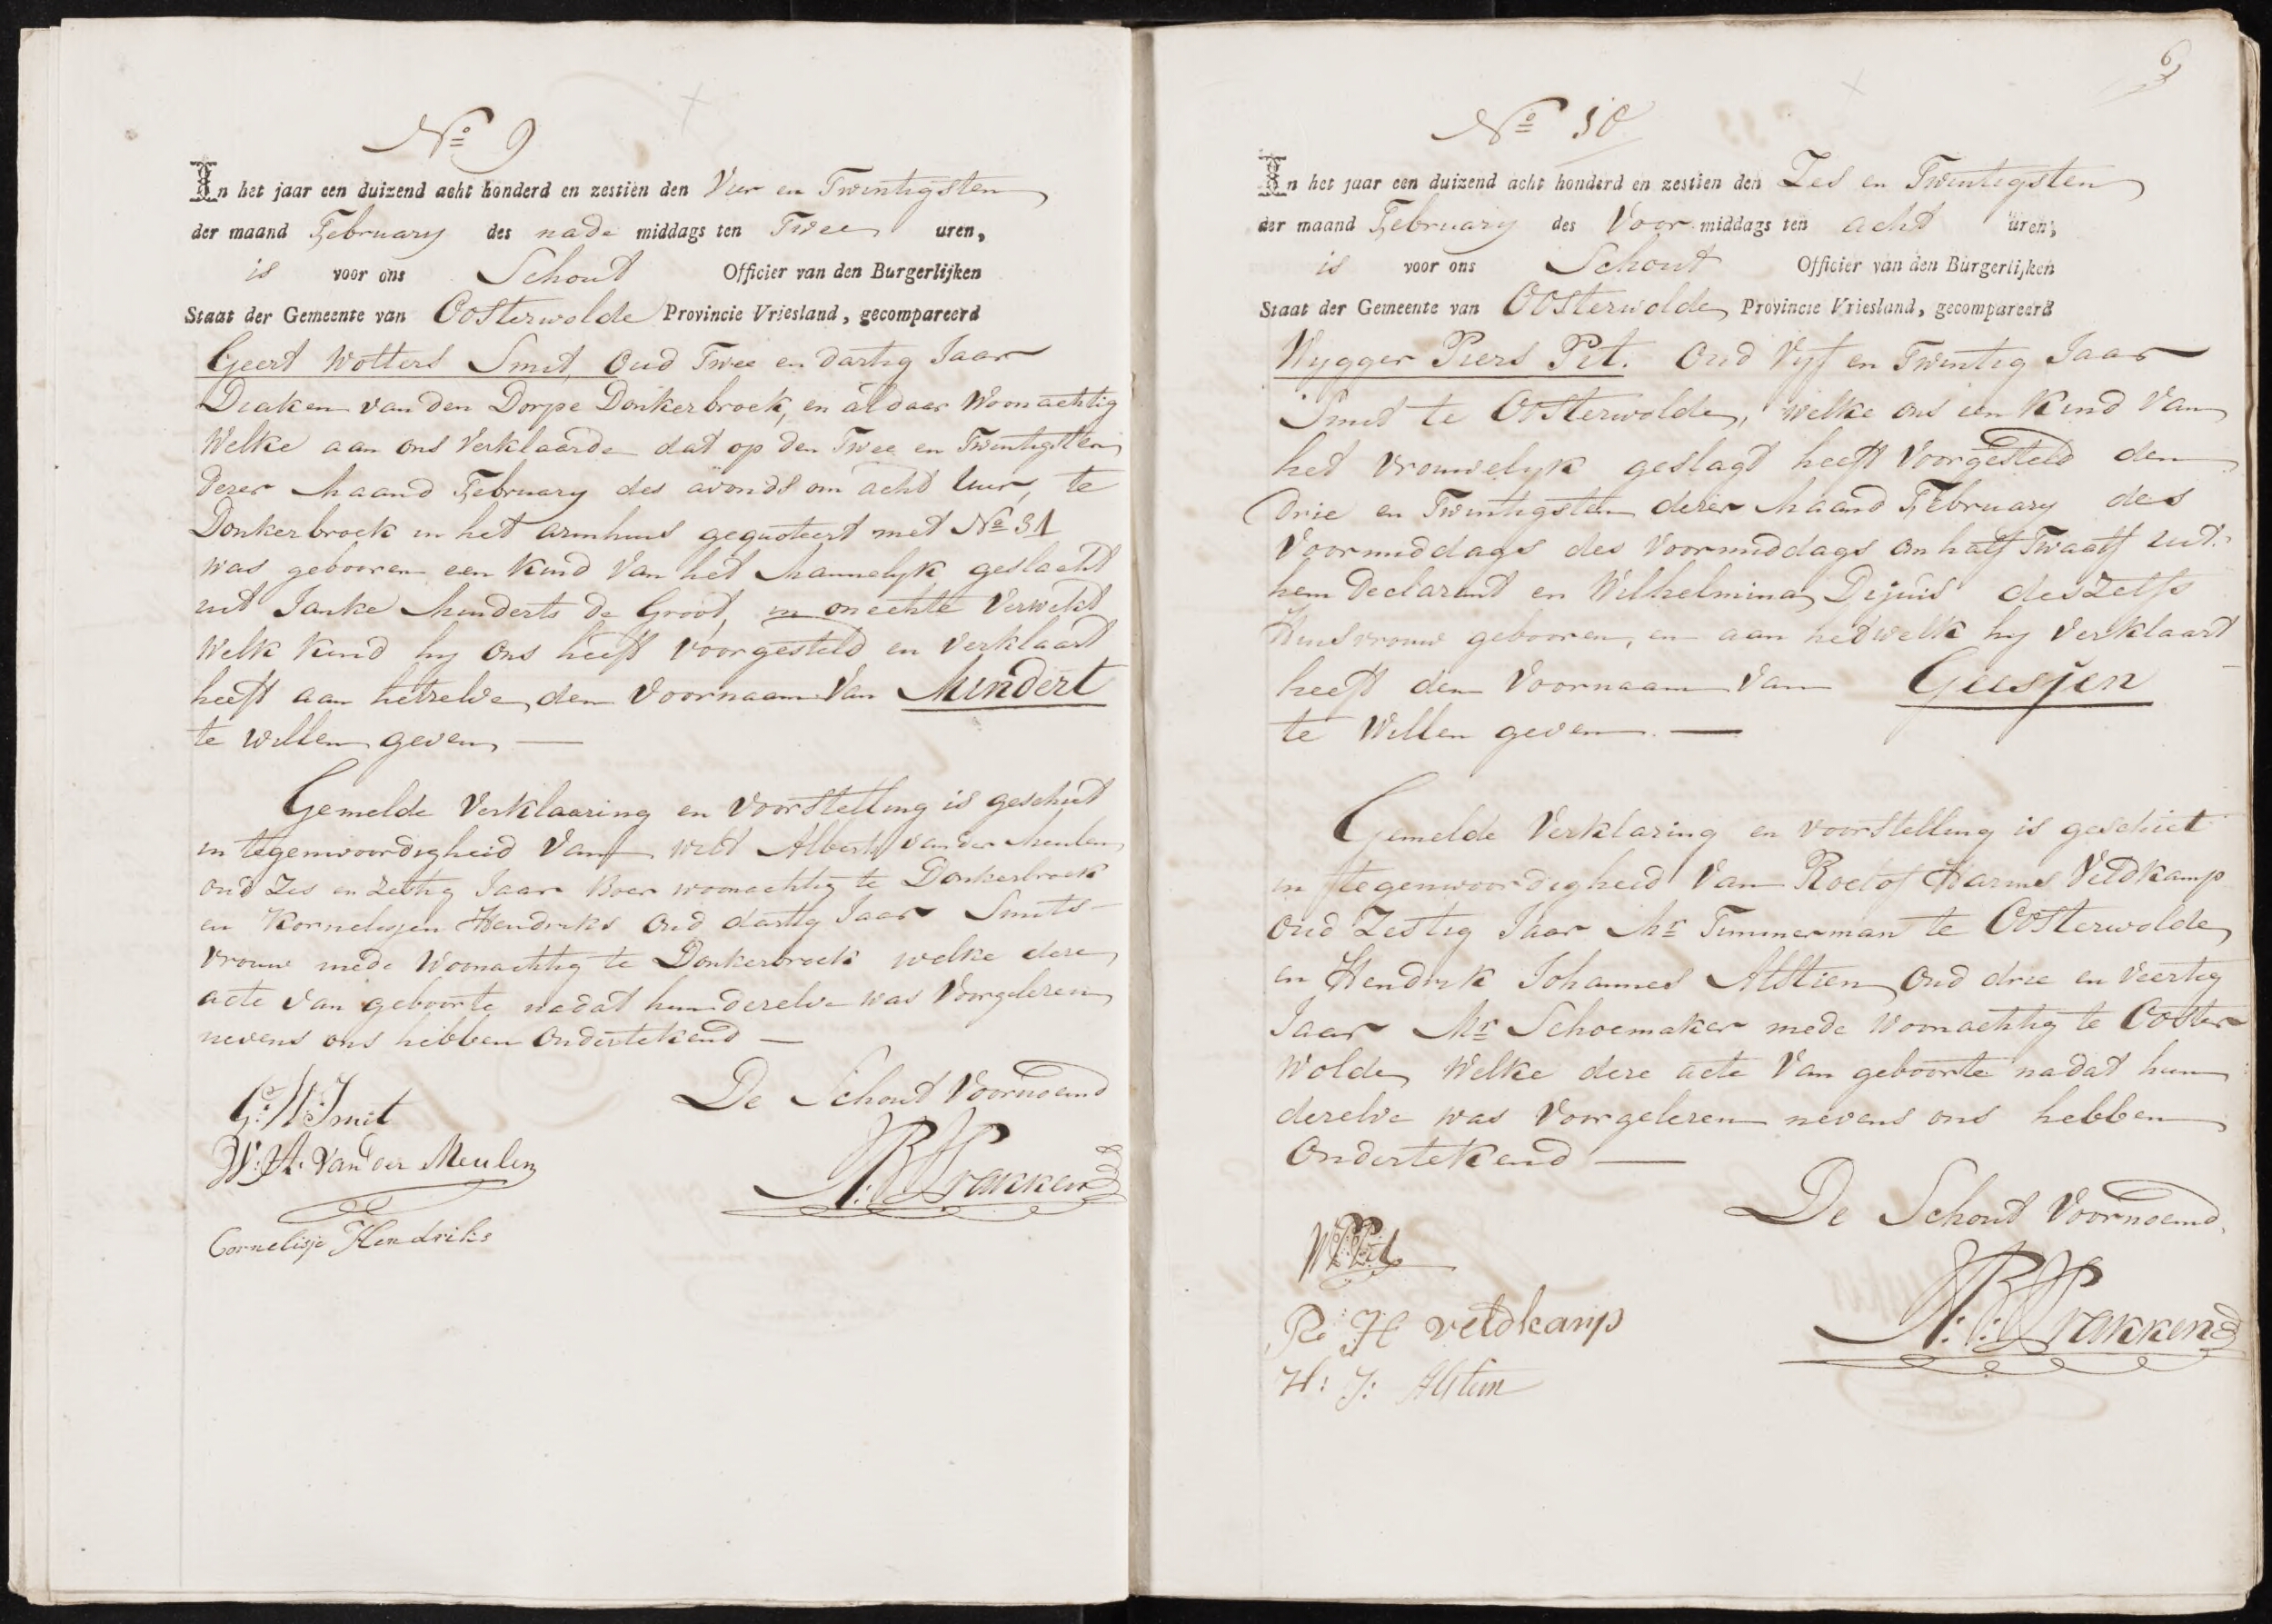 No 9
In het jaar een duizend acht honderd en zestien den Vier en Twintigsten
der maand February des nade middags ten Twee uren,
is voor ons Schout Officier van den Burgerlijken
Staat der Gemeente van Oosterwolde Provincie Vriesland, gecompareerd
Geert Wolters Smit, Oud Twee en dartig Jaar
Diaken van den Dorpe Donkerbroek, en aldaar Woonachtig
Welke aan ons Verklaarde dat op den Twee en Twintigsten
dezer Maand February des avonds om acht Uur, te
Donkerbroek in het armhuis gequoteert met No 31
was gebooren een Kind Van het Mannelyk geslacht
uit Janke Minderts de Groot, in onechte Verwekt
Welk Kind hy Ons heeft voorgesteld en Verklaart
heeft aan hetzelve den Voornaam Van Mindert
te willen geven —
Gemelde Verklaaring en voorstelling is geschiet
in tegenwoordigheid Van Wilt Alberts van der Meulen
oud Zes en Zestig Jaar Boer woonachtig te Donkerbroek
en Kornelisjen Hendriks Oud dartig Jaar Smits-
vrouw mede Woonachtig te Donkerbroek welke deze
acte van geboorte nadat hun dezelve was Voorgelezen
nevens ons hebben Ondertekend —
De Schout Voornoemd
G: W: Smit
W: A: Van der Meulen
Cornelisje Hendriks
6
No 10
In het jaar een duizend acht honderd en zestien den Zes en Twintigsten
der maand February des Voor middags ten acht uren,
is voor ons Schout Officier van den Burgerlijken
Staat der Gemeente van Oosterwolde Provincie Vriesland, gecompareerd
Wygger Piers Pit. Oud Vyf en Twintig Jaar
Smit te Oosterwolde, welke ons een Kind Van
het vrouwelyk geslagt heeft Voorgesteld den
Drie en Twintigsten dezer Maand February des
Voormiddags des Voormiddags om half Twaalf uit
hem Declarant en Wilhelmina Dijuis deszelfs
Huisvrouw gebooren, en aan hetwelk hy Verklaart
heeft den Voornaam Van Geesjen
te Willen geven —
Gemelde Verklaring en voorstelling is geschiet
in tegenwoordigheid Van Roelof Harms Veldkamp
Oud Zestig Jaar Mr Timmerman te Oosterwolde
en Hendrik Johannes Alstien Oud drie en Veertig
Jaar Mr Schoemaker mede Woonachtig te Ooster
Wolde, Welke deze acte Van geboorte nadat hun
dezelve was Voorgelezen nevens ons hebben
Ondertekend —
De Schout Voornoemd.
W P Pit
R: H veldkamp
H: J: Alstein